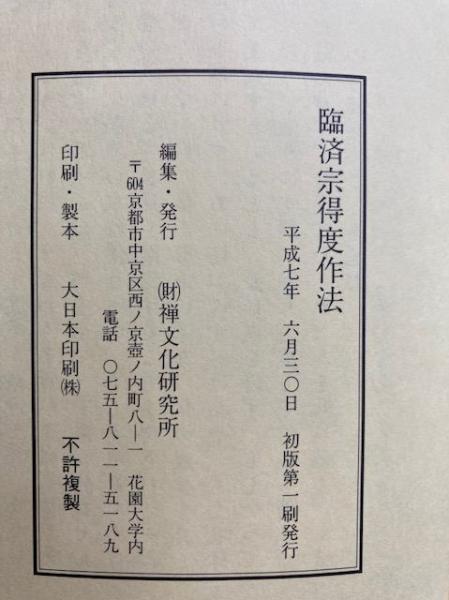 臨済宗得度作法
平成七年 六月三〇日 初版第一刷発行
編集・発行 (財)禅文化研究所
〒604京都市中京区西ノ京壺ノ内町八―一 花園大学内
電話 〇七五―八一一―五一八九
印刷・製本 大日本印刷(株) 不許複製